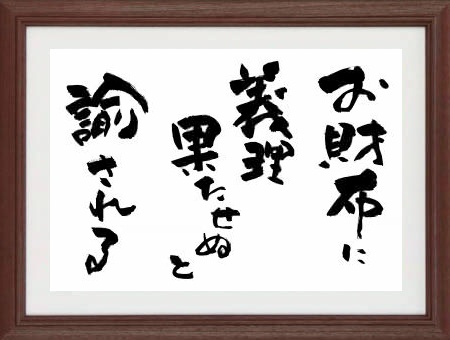 お財布に
義理
果たせぬと
諭される